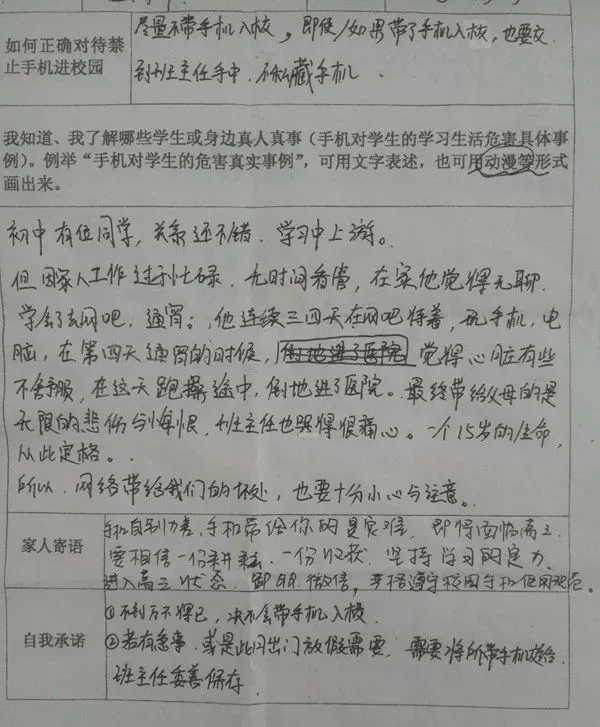 如何正确对待禁
止手机进校园
尽量不带手机入校，即使/如果带了手机入校，也要交
到班主任手中，不私藏手机．
我知道、我了解哪些学生或身边真人真事（手机对学生的学习生活危害具体事
例）。例举“手机对学生的危害真实事例”，可用文字表述，也可用动漫等形式
画出来。
初中有位同学，关系还不错．学习中上游。
但因家人工作过于忙碌．无时间看管，在家他觉得无聊．
学会了去网吧，通宵；他连续三四天在网吧待着，玩手机，电
脑，在第四天通宵的时候，倒地进了医院 觉得心脏有些
不舒服，在这天跑操途中，倒地进了医院。最终带给父母的是
无限的悲伤与悔恨，班主任也觉得很痛心。一个15岁的生命，
从此定格。
所以．网络带给我们的坏处，也要十分小心与注意。
家人寄语
自制力差，手机带给你的是灾难．即将面临高三．
要相信一份耕耘．一份收获．坚持学习的定力．
进入高三状态．卸QQ．微信，严格遵守校园手机使用规范。
自我承诺
①不到万不得已，决不会带手机入校．
②若有急事．或是出门放假需要，需要将所带手机送给
班主任妥善保存．